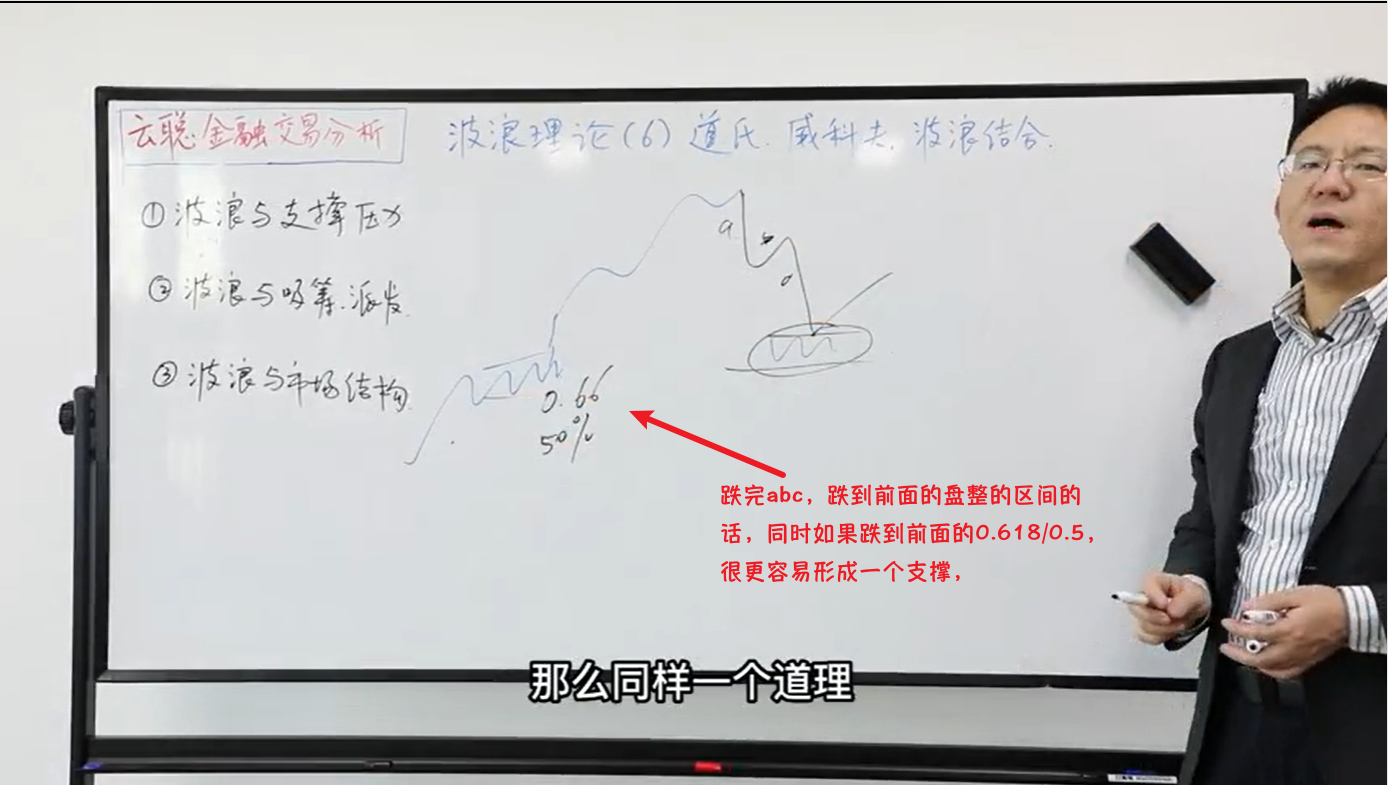 云聪金融交易分析
波浪理论(6) 道氏.威科夫.波浪结合.
① 波浪与支撑压力
② 波浪与吸筹.派发.
③ 波浪与市场结构.
a
b
c
0.66
50%
跌完abc，跌到前面的盘整的区间的
话，同时如果跌到前面的0.618/0.5，
很更容易形成一个支撑，
那么同样一个道理